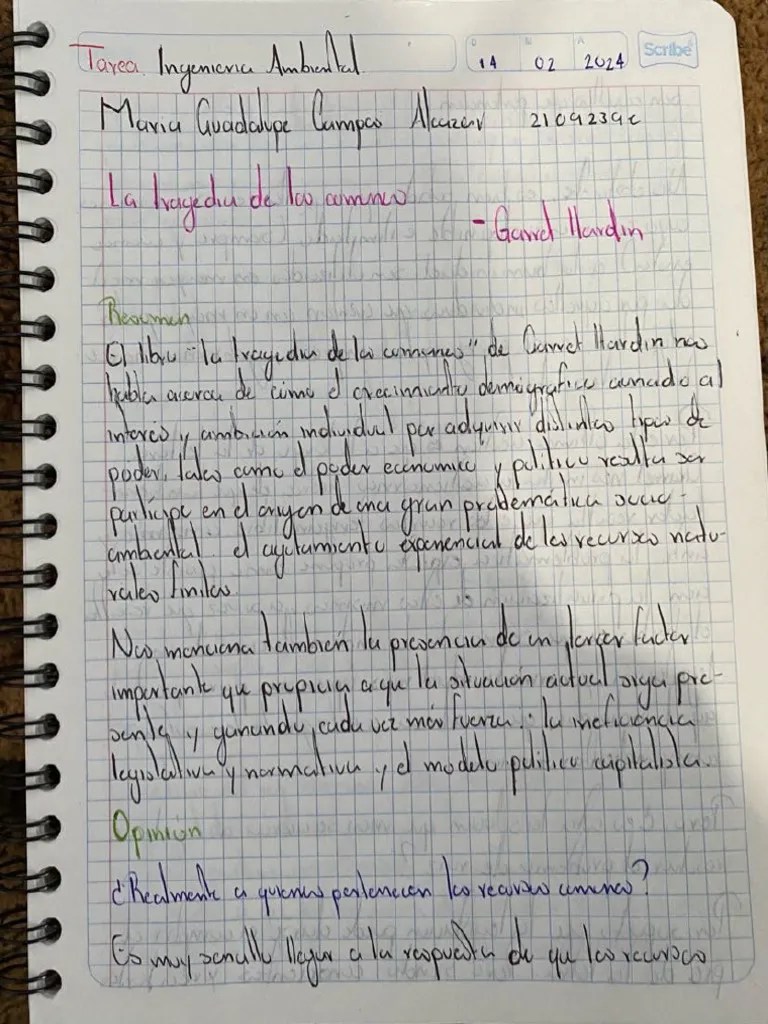 Tarea Ingenieria Ambiental
14 02 2024
Scribe
Maria Guadalupe Campos Alcazar 2109239c
La tragedia de los comunes
- Garret Hardin
Resumen
El libro "la tragedia de los comunes" de Garret Hardin nos
habla acerca de cómo el crecimiento demográfico aunado al
interés y ambición individual por adquirir distintos tipos de
poder, tales como el poder económico y político resulta ser
partícipe en el origen de una gran problemática socio-
ambiental: el agotamiento exponencial de los recursos natu-
rales finitos.
Nos menciona también la presencia de un tercer factor
importante que propicia a que la situación actual siga pre-
sente y ganando cada vez más fuerza: la ineficiencia
legislativa y normativa y el modelo político capitalista.
Opinión
¿Realmente a quienes pertenecen los recursos comunes?
Es muy sencillo llegar a la respuesta de que los recursos